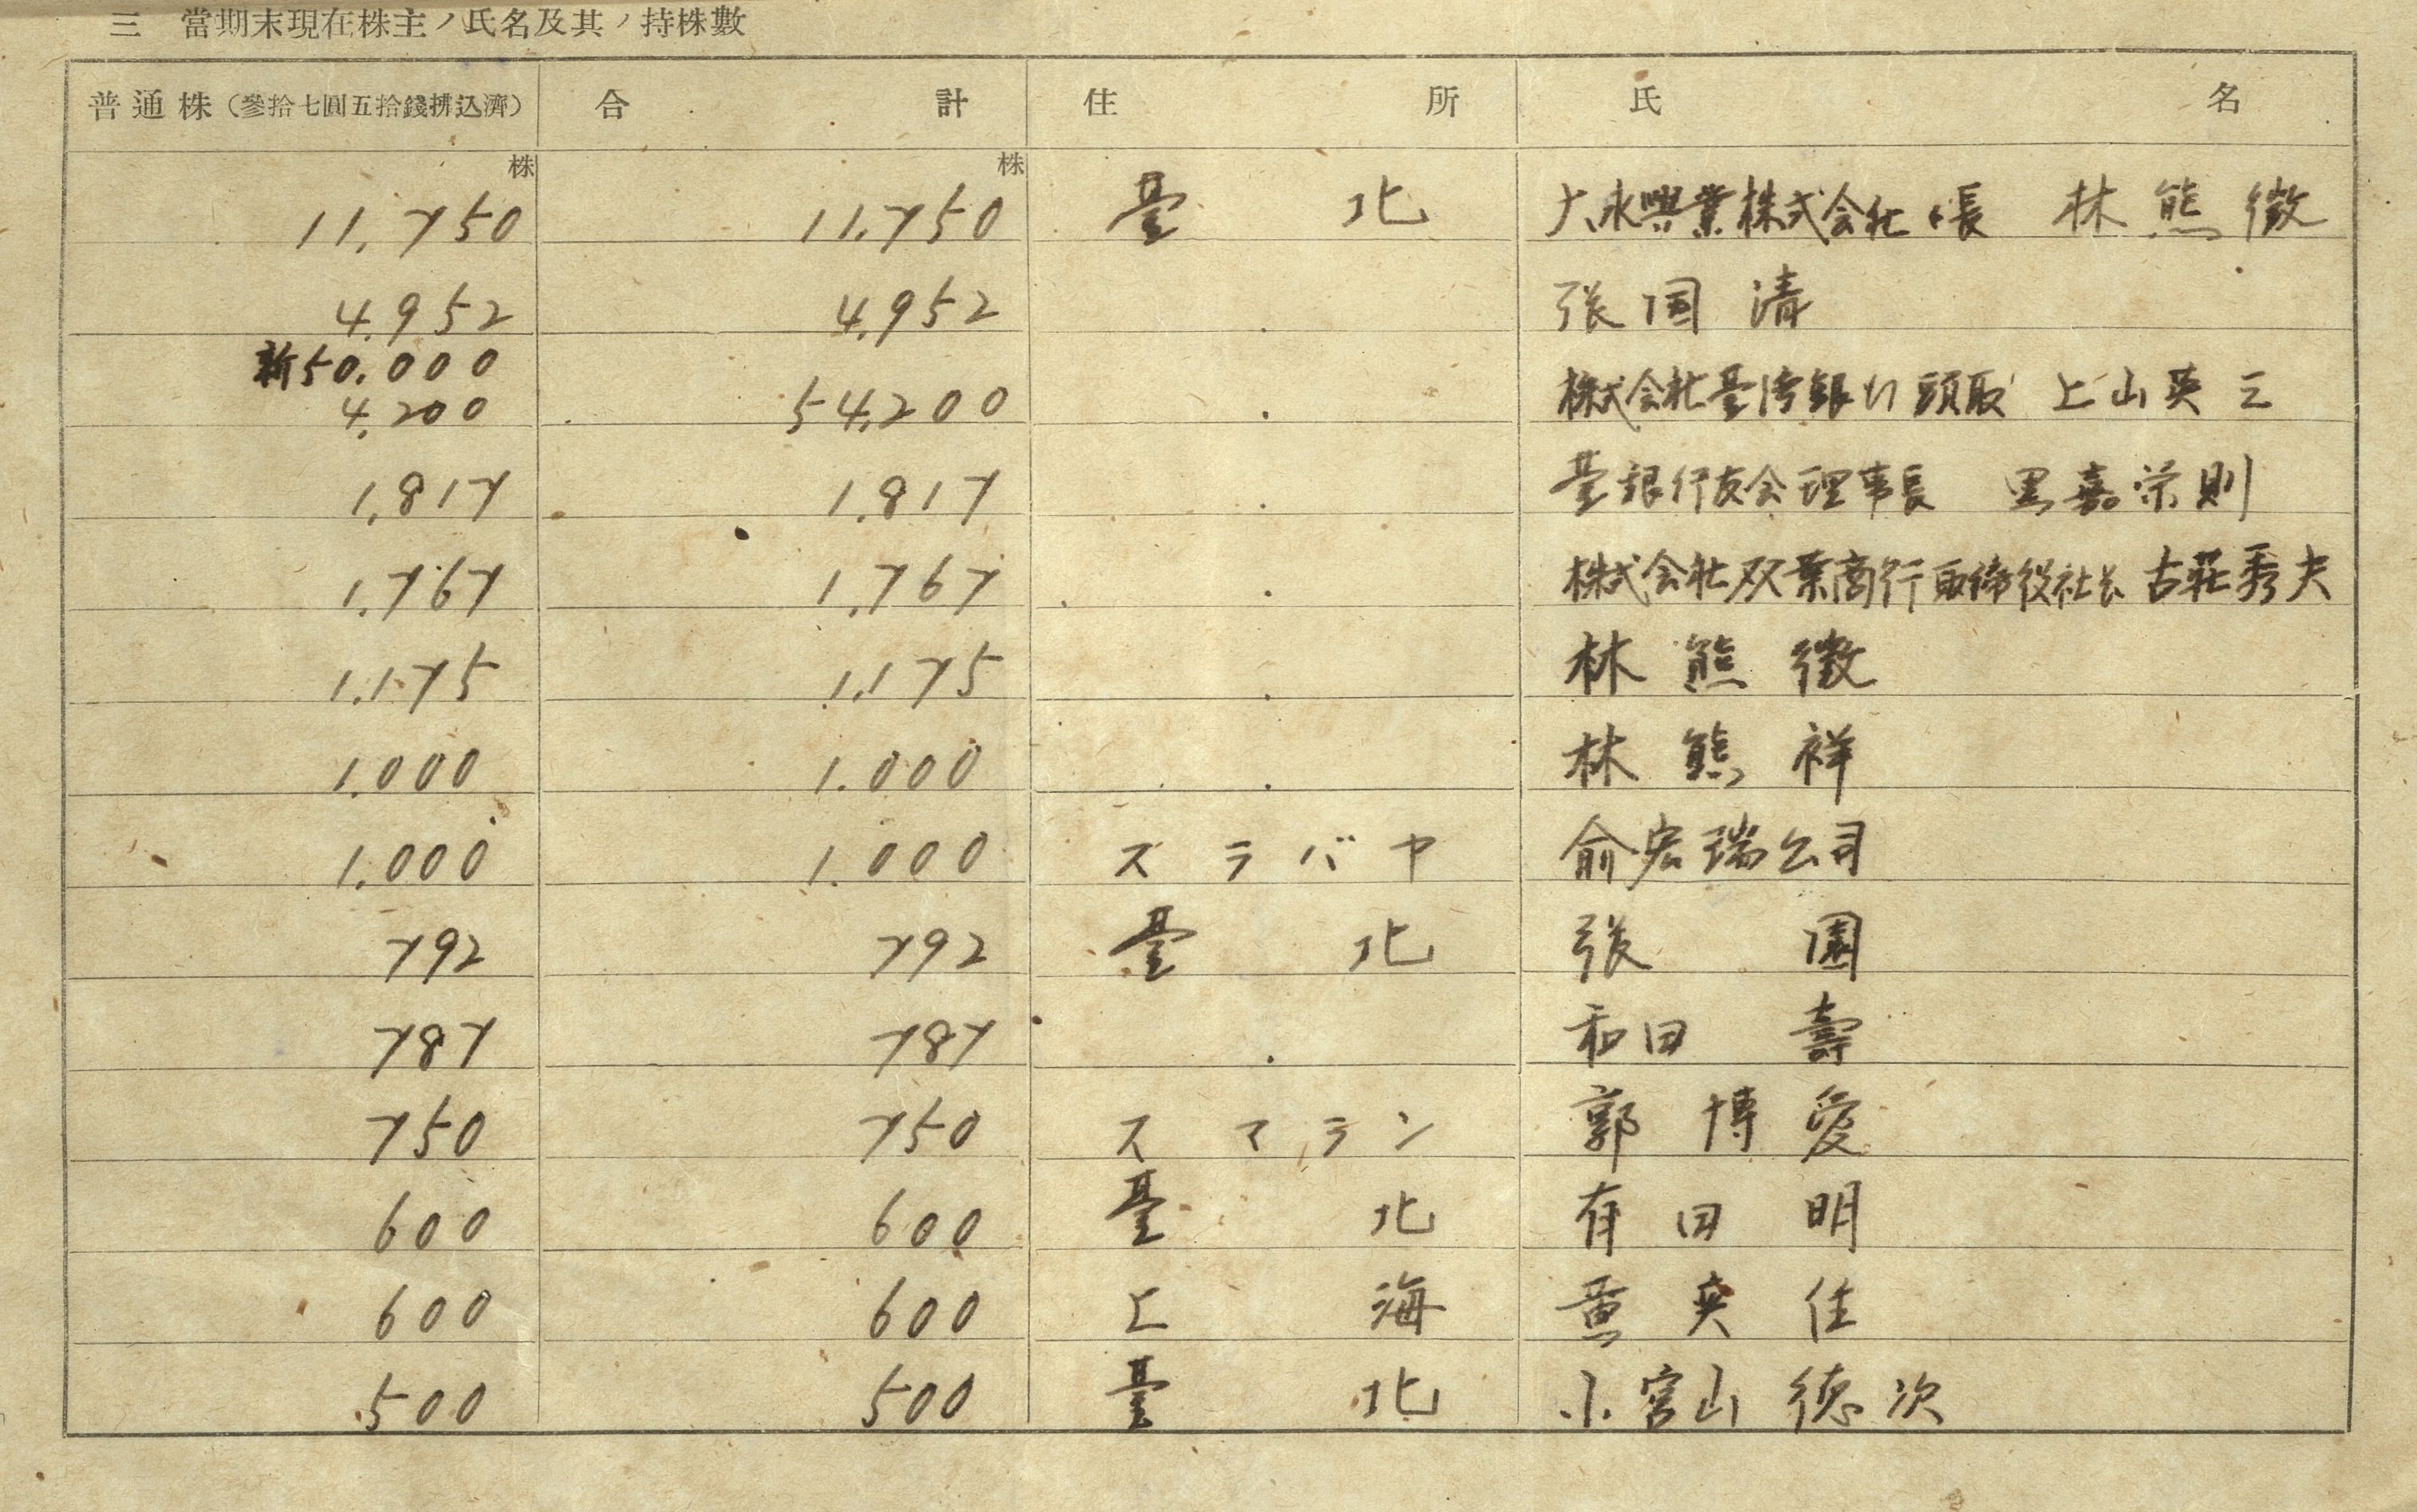 三 當期末現在株主ノ氏名及其ノ持株數
普通株(參拾七圓五拾錢拂込濟) 合計 住所 氏名
株 株
11,750 11,750 臺北 大永興業株式会社 長 林熊徵
4,952 4,952 . 張園清
新50,000
4,200 54,200 . 株式会社臺湾銀行頭取 上山英三
1,817 1,817 . 臺銀行友会理事長 黒嘉栄則
1,767 1,767 . 株式会社双葉商行取締役社長 古荘秀夫
1,175 1,175 . 林熊徵
1,000 1,000 . 林熊祥
1,000 1,000 スラバヤ 俞宏瑞公司
792 792 臺北 張園
787 787 . 和田壽
750 750 スマラン 郭博愛
600 600 臺北 有田明
600 600 上海 英佳
500 500 臺北 小宮山徳次